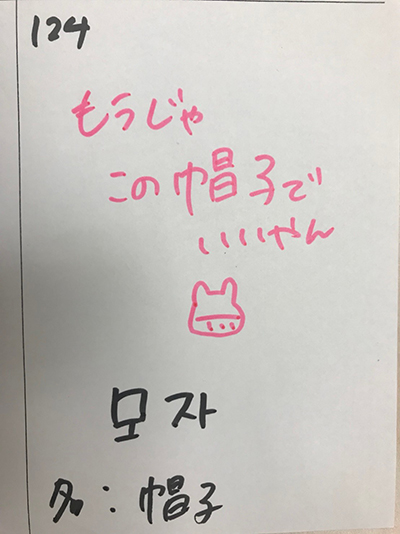 124
もうじゃ
この帽子で
いいやん
모자
名：帽子